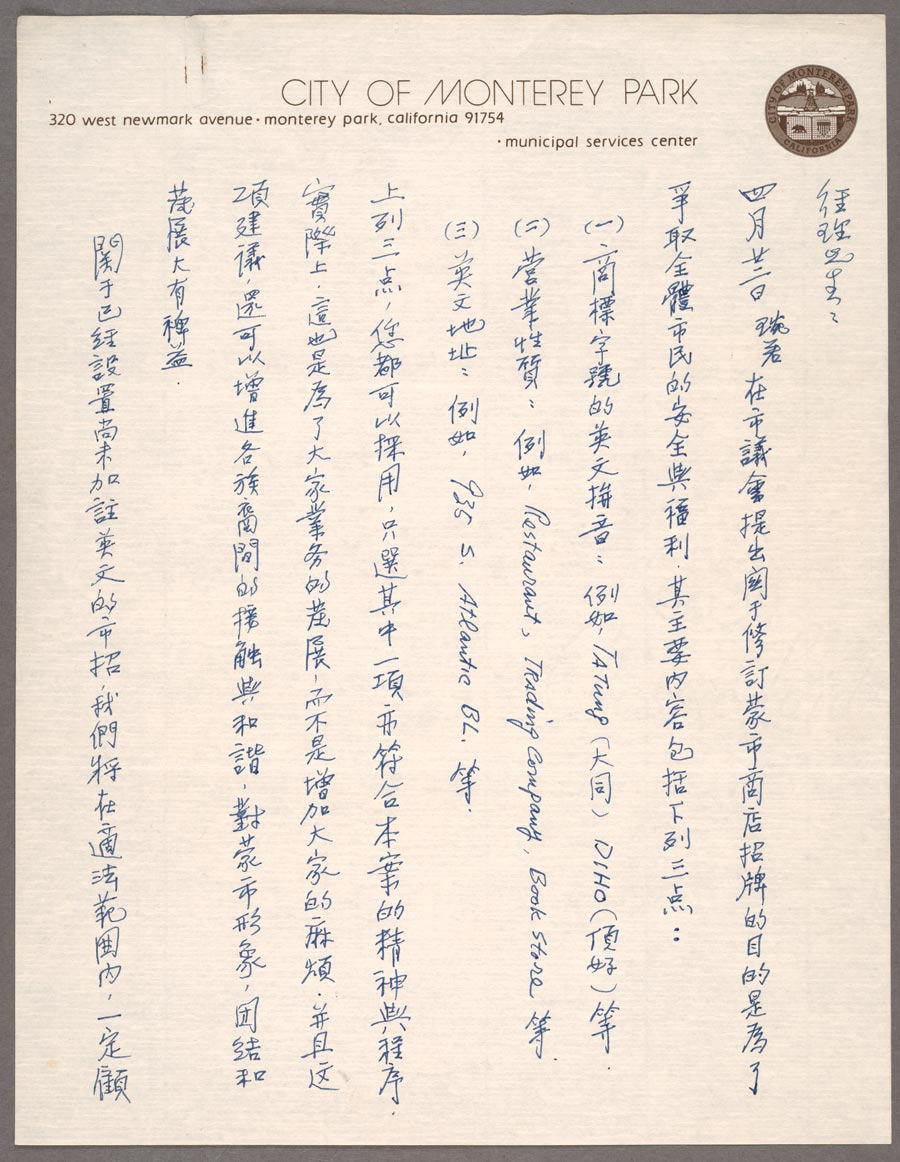 CITY OF MONTEREY PARK
320 west newmark avenue · monterey park, california 91754
· municipal services center
CITY OF MONTEREY PARK
CALIFORNIA
經理先生:
四月廿二日 琬若 在市議會提出関于修訂蒙市商店招牌的目的是為了
爭取全體市民的安全與福利.其主要內容包括下列三点:
(一)商標,字號的英文拼音:例如,TATung(大同)DIHO(頂好)等.
(二)營業性質:例如,Restaurant, Trading Company, Book Store 等.
(三)英文地址:例如,935 S. Atlantic BL. 等.
上列三点,您都可以採用,只選其中一項亦符合本案的精神與程序.
實際上,這也是為了大家業务的發展,而不是增加大家的麻煩.并且这
項建議,還可以增進各族裔間的接触與和諧,對蒙市形象,团結和
發展大有裨益.
関于已經設置尚未加註英文的市招,我們將在適法範囲內,一定顧